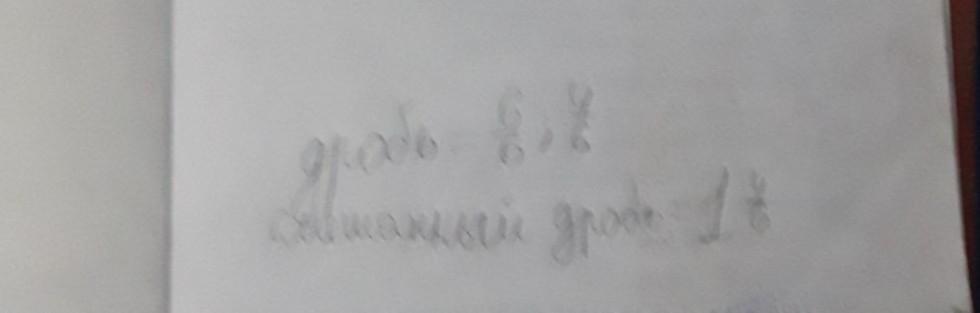 дробь = 6/6, 4/6
смешанный дробь = 1 4/6